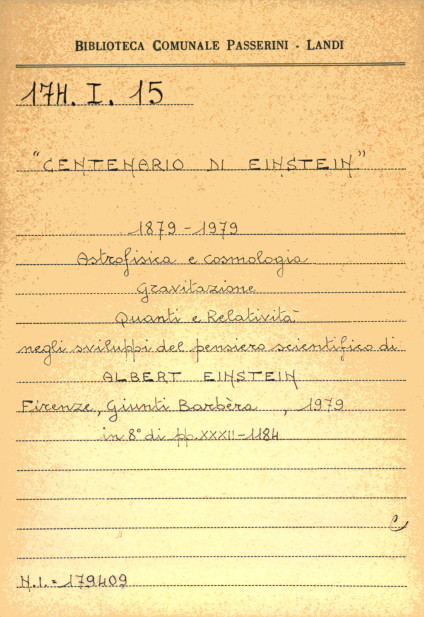 BIBLIOTECA COMUNALE PASSERINI - LANDI
17H. I. 15
"CENTENARIO DI EINSTEIN"
1879-1979
Astrofisica e cosmologia
Gravitazione
Quanti e Relatività
negli sviluppi del pensiero scientifico di
ALBERT EINSTEIN
Firenze, Giunti Barbèra , 1979
in 8° di pp. XXXII-1184
C
N.I.= 179409